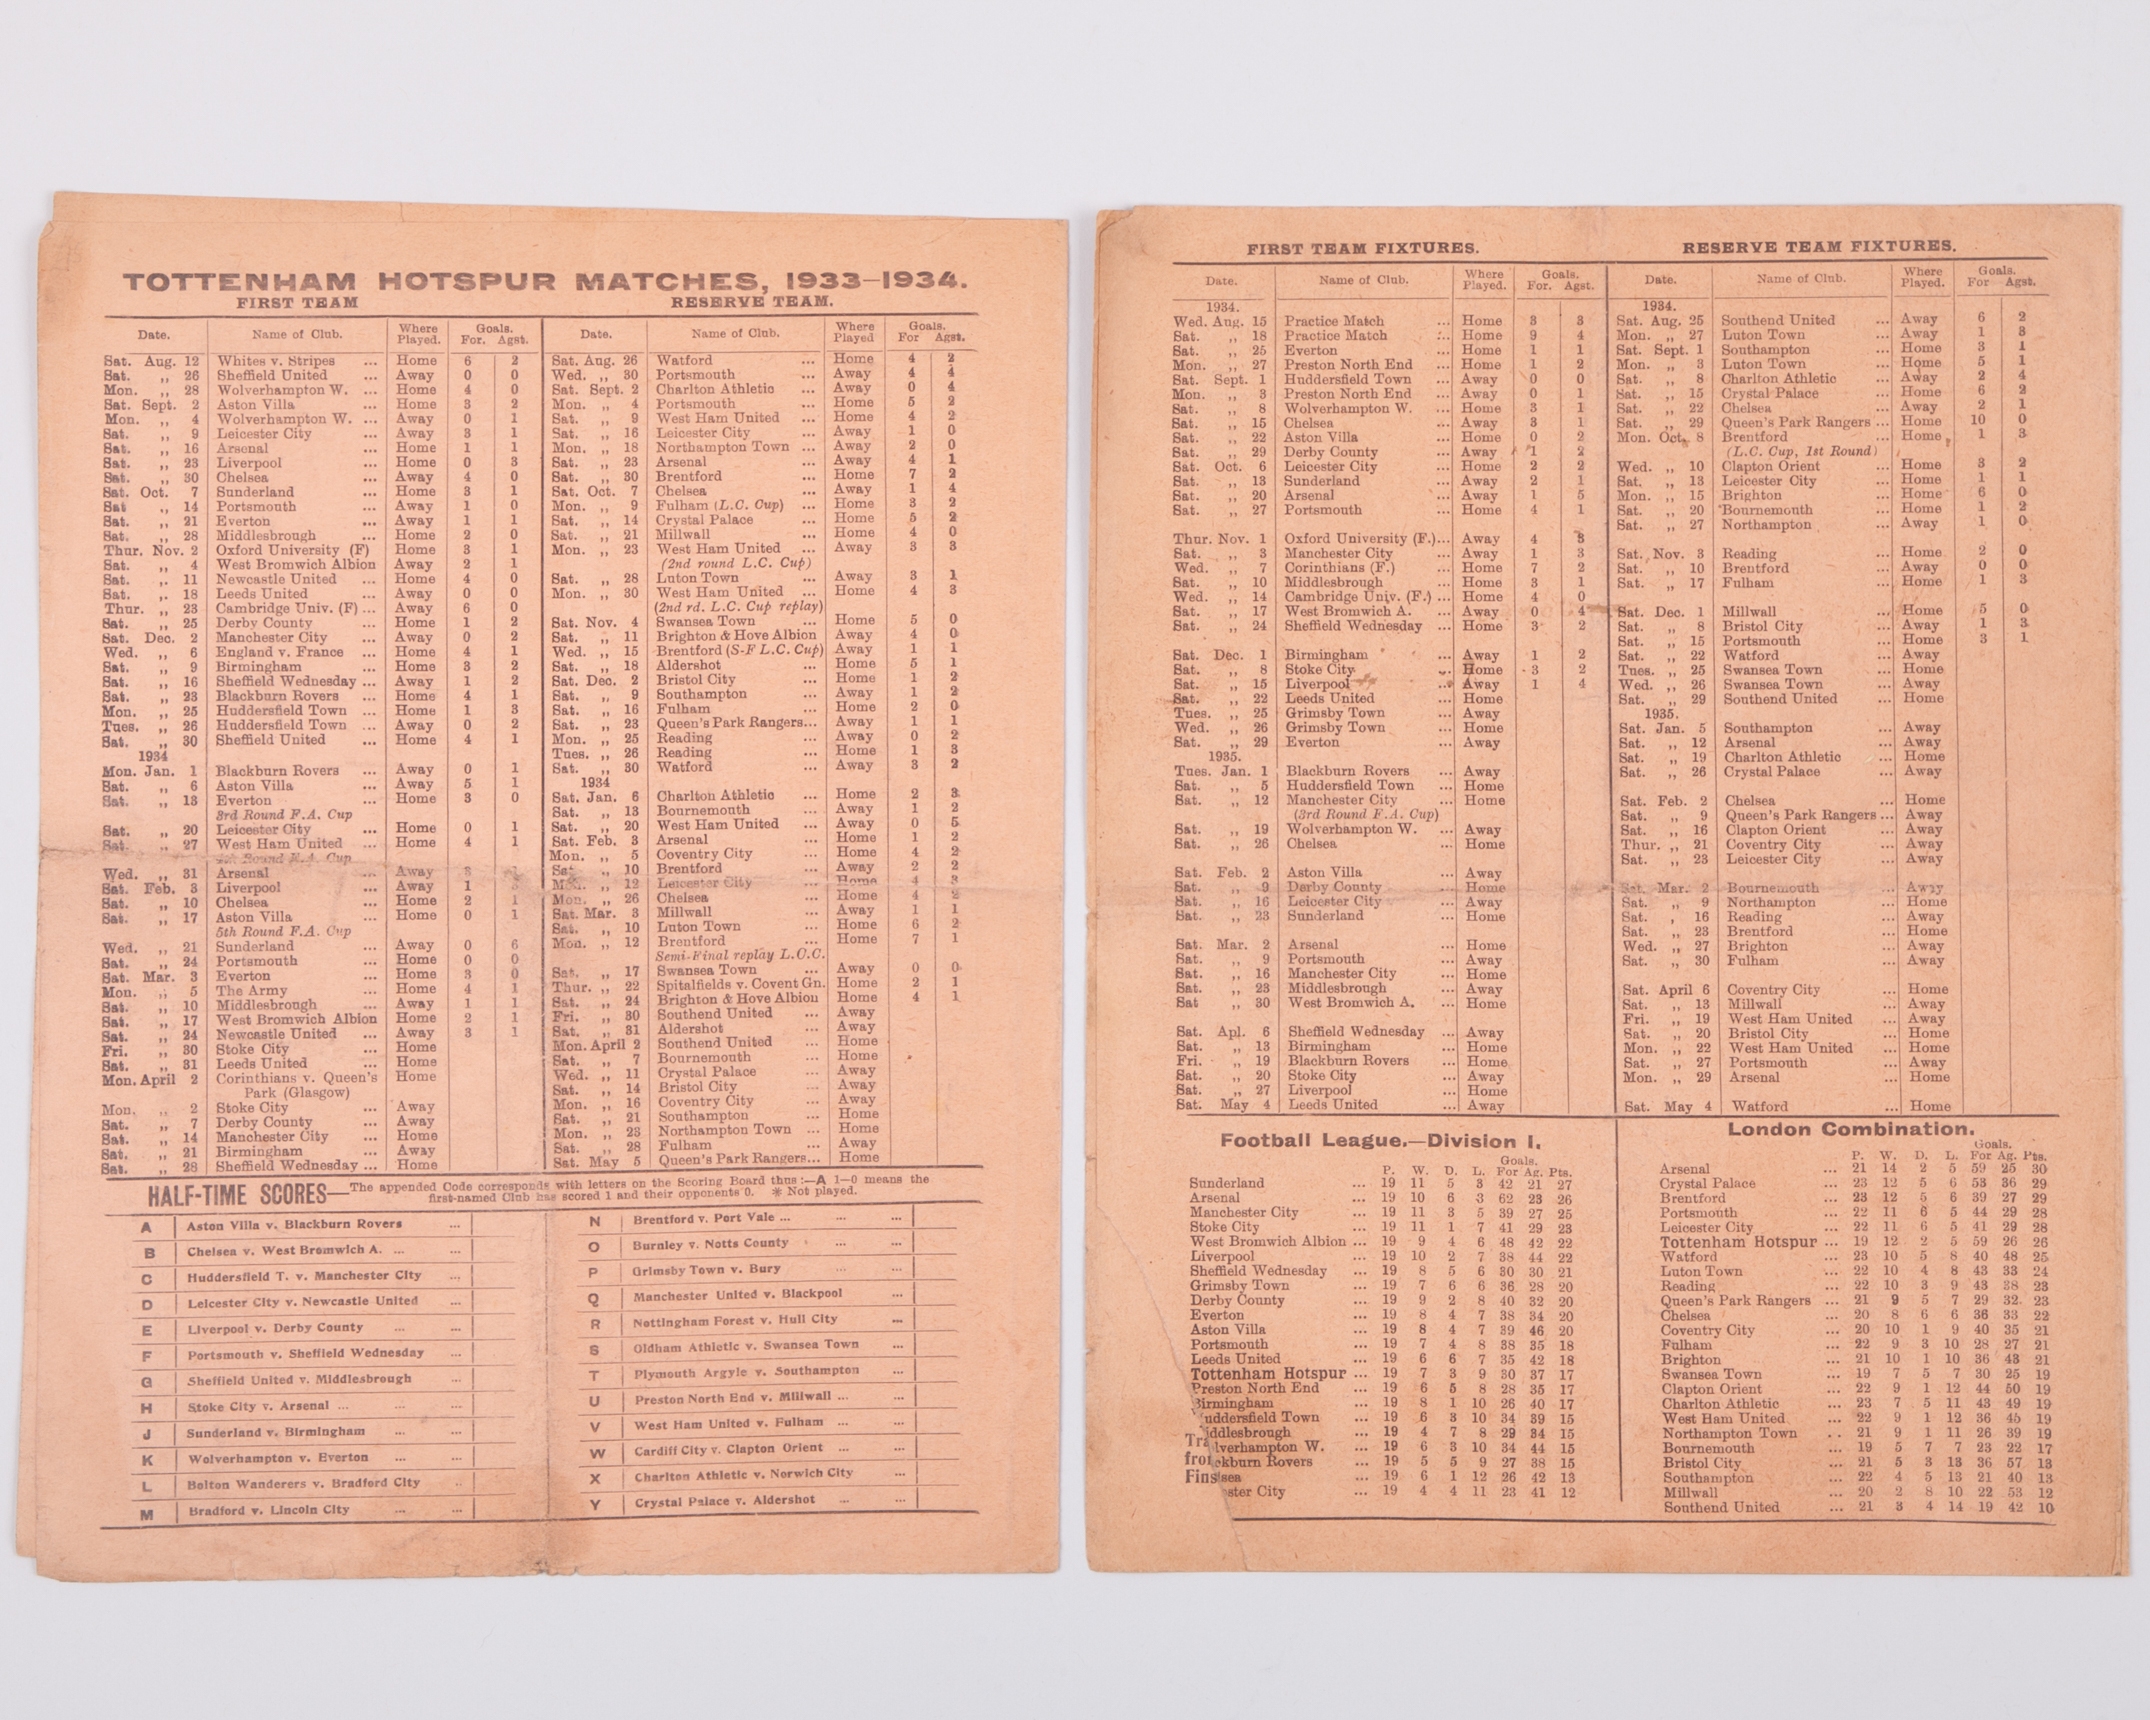 TOTTENHAM HOTSPUR MATCHES, 1933–1934.
FIRST TEAM
Date. Name of Club. Where Played. Goals. For. Agst.
Sat. Aug. 12 Whites v. Stripes ... Home 6 2
Sat. ,, 26 Sheffield United ... Away 0 0
Mon. ,, 28 Wolverhampton W. ... Home 4 0
Sat. Sept. 2 Aston Villa ... Home 3 2
Mon. ,, 4 Wolverhampton W. ... Away 0 1
Sat. ,, 9 Leicester City ... Away 3 1
Sat. ,, 16 Arsenal ... Home 1 1
Sat. ,, 23 Liverpool ... Home 0 3
Sat. ,, 30 Chelsea ... Away 4 0
Sat. Oct. 7 Sunderland ... Home 3 1
Sat ,, 14 Portsmouth ... Away 1 0
Sat. ,, 21 Everton ... Away 1 1
Sat. ,, 28 Middlesbrough ... Home 2 0
Thur. Nov. 2 Oxford University (F) Home 3 1
Sat. ,, 4 West Bromwich Albion Away 2 1
Sat. ,, 11 Newcastle United ... Home 4 0
Sat. ,, 18 Leeds United ... Away 0 0
Thur. ,, 23 Cambridge Univ. (F) ... Away 6 0
Sat. ,, 25 Derby County ... Home 1 2
Sat. Dec. 2 Manchester City ... Away 0 2
Wed. ,, 6 England v. France ... Home 4 1
Sat. ,, 9 Birmingham ... Home 3 2
Sat. ,, 16 Sheffield Wednesday ... Away 1 2
Sat. ,, 23 Blackburn Rovers ... Home 4 1
Mon. ,, 25 Huddersfield Town ... Home 1 3
Tues. ,, 26 Huddersfield Town ... Away 0 2
Sat. ,, 30 Sheffield United ... Home 4 1
1934
Mon. Jan. 1 Blackburn Rovers ... Away 0 1
Sat. ,, 6 Aston Villa ... Away 5 1
Sat. ,, 13 Everton ... Home 3 0
3rd Round F.A. Cup
Sat. ,, 20 Leicester City ... Home 0 1
Sat. ,, 27 West Ham United ... Home 4 1
Round F.A. Cup
Wed. ,, 31 Arsenal ... Away 3
Sat. Feb. 3 Liverpool ... Away 1
Sat. ,, 10 Chelsea ... Home 2 1
Sat. ,, 17 Aston Villa ... Home 0 1
5th Round F.A. Cup
Wed. ,, 21 Sunderland ... Away 0 6
Sat. ,, 24 Portsmouth ... Home 0 0
Sat. Mar. 3 Everton ... Home 3 0
Mon. ,, 5 The Army ... Home 4 1
Sat. ,, 10 Middlesbrough ... Away 1 1
Sat. ,, 17 West Bromwich Albion Home 2 1
Sat. ,, 24 Newcastle United ... Away 3 1
Fri. ,, 30 Stoke City ... Home
Sat. ,, 31 Leeds United ... Home
Mon. April 2 Corinthians v. Queen's Home
Park (Glasgow)
Mon. ,, 2 Stoke City ... Away
Sat. ,, 7 Derby County ... Away
Sat. ,, 14 Manchester City ... Home
Sat. ,, 21 Birmingham ... Away
Sat. ,, 28 Sheffield Wednesday ... Home
RESERVE TEAM.
Date. Name of Club. Where Played. Goals. For Agst.
Sat. Aug. 26 Watford ... Home 4 2
Wed. ,, 30 Portsmouth ... Away 4 4
Sat. Sept. 2 Charlton Athletic ... Away 0 4
Mon. ,, 4 Portsmouth ... Home 5 2
Sat. ,, 9 West Ham United ... Home 4 2
Sat. ,, 16 Leicester City ... Away 1 0
Mon. ,, 18 Northampton Town ... Away 2 0
Sat. ,, 23 Arsenal ... Away 4 1
Sat. ,, 30 Brentford ... Home 7 2
Sat. Oct. 7 Chelsea ... Away 1 4
Mon. ,, 9 Fulham (L.C. Cup) ... Home 3 2
Sat. ,, 14 Crystal Palace ... Home 5 2
Sat. ,, 21 Millwall ... Home 4 0
Mon. ,, 23 West Ham United ... Away 3 3
(2nd round L.C. Cup)
Sat. ,, 28 Luton Town ... Away 3 1
Mon. ,, 30 West Ham United ... Home 4 3
(2nd rd. L.C. Cup replay)
Sat. Nov. 4 Swansea Town ... Home 5 0
Sat. ,, 11 Brighton & Hove Albion Away 4 0
Wed. ,, 15 Brentford (S-F L.C. Cup) Away 1 1
Sat. ,, 18 Aldershot ... Home 5 1
Sat. Dec. 2 Bristol City ... Home 1 2
Sat. ,, 9 Southampton ... Away 1 2
Sat. ,, 16 Fulham ... Home 2 0
Sat. ,, 23 Queen's Park Rangers... Away 1 1
Mon. ,, 25 Reading ... Away 0 2
Tues. ,, 26 Reading ... Home 1 3
Sat. ,, 30 Watford ... Away 3 2
1934
Sat. Jan. 6 Charlton Athletic ... Home 2 3
Sat. ,, 13 Bournemouth ... Away 1 2
Sat. ,, 20 West Ham United ... Away 0 5
Sat. Feb. 3 Arsenal ... Home 1 2
Mon. ,, 5 Coventry City ... Home 4 2
Sat. ,, 10 Brentford ... Away 2 2
Mon. ,, 12 Leicester City ... Home 4 3
Mon. ,, 26 Chelsea ... Home 4 2
Sat. Mar. 3 Millwall ... Away 1 1
Sat. ,, 10 Luton Town ... Home 6 2
Mon. ,, 12 Brentford ... Home 7 1
Semi-Final replay L.C.C.
Sat. ,, 17 Swansea Town ... Away 0 0
Thur. ,, 22 Spitalfields v. Covent Gn. Home 2 1
Sat. ,, 24 Brighton & Hove Albion Home 4 1
Fri. ,, 30 Southend United ... Away
Sat. ,, 31 Aldershot ... Away
Mon. April 2 Southend United ... Home
Sat. ,, 7 Bournemouth ... Home
Wed. ,, 11 Crystal Palace ... Away
Sat. ,, 14 Bristol City ... Away
Mon. ,, 16 Coventry City ... Away
Sat. ,, 21 Southampton ... Home
Mon. ,, 23 Northampton Town ... Home
Sat. ,, 28 Fulham ... Away
Sat. May 5 Queen's Park Rangers... Home
HALF-TIME SCORES—The appended Code corresponds with letters on the Scoring Board thus:—A 1–0 means the
first-named Club has scored 1 and their opponents 0. * Not played.
A Aston Villa v. Blackburn Rovers ...
B Chelsea v. West Bromwich A. ... ...
C Huddersfield T. v. Manchester City ...
D Leicester City v. Newcastle United ...
E Liverpool v. Derby County ... ...
F Portsmouth v. Sheffield Wednesday ...
G Sheffield United v. Middlesbrough ...
H Stoke City v. Arsenal ... ... ...
J Sunderland v. Birmingham ... ...
K Wolverhampton v. Everton ... ...
L Bolton Wanderers v. Bradford City ..
M Bradford v. Lincoln City ... ...
N Brentford v. Port Vale ... ... ...
O Burnley v. Notts County ... ...
P Grimsby Town v. Bury ... ...
Q Manchester United v. Blackpool ...
R Nottingham Forest v. Hull City ...
S Oldham Athletic v. Swansea Town ...
T Plymouth Argyle v. Southampton ...
U Preston North End v. Millwall ... ...
V West Ham United v. Fulham ... ...
W Cardiff City v. Clapton Orient ... ...
X Charlton Athletic v. Norwich City ...
Y Crystal Palace v. Aldershot ... ...
FIRST TEAM FIXTURES.
Date. Name of Club. Where Played. Goals. For. Agst.
1934.
Wed. Aug. 15 Practice Match ... Home 3 3
Sat. ,, 18 Practice Match ... Home 9 4
Sat. ,, 25 Everton ... Home 1 1
Mon. ,, 27 Preston North End ... Home 1 2
Sat. Sept. 1 Huddersfield Town ... Away 0 0
Mon. ,, 3 Preston North End ... Away 0 1
Sat. ,, 8 Wolverhampton W. ... Home 3 1
Sat. ,, 15 Chelsea ... Away 3 1
Sat. ,, 22 Aston Villa ... Home 0 2
Sat. ,, 29 Derby County ... Away 1 2
Sat. Oct. 6 Leicester City ... Home 2 2
Sat. ,, 13 Sunderland ... Away 2 1
Sat. ,, 20 Arsenal ... Away 1 5
Sat. ,, 27 Portsmouth ... Home 4 1
Thur. Nov. 1 Oxford University (F.)... Away 4 3
Sat. ,, 3 Manchester City ... Away 1 3
Wed. ,, 7 Corinthians (F.) ... Home 7 2
Sat. ,, 10 Middlesbrough ... Home 3 1
Wed. ,, 14 Cambridge Univ. (F.) ... Home 4 0
Sat. ,, 17 West Bromwich A. ... Away 0 4
Sat. ,, 24 Sheffield Wednesday ... Home 3 2
Sat. Dec. 1 Birmingham ... Away 1 2
Sat. ,, 8 Stoke City ... Home 3 2
Sat. ,, 15 Liverpool ... Away 1 4
Sat. ,, 22 Leeds United ... Home
Tues. ,, 25 Grimsby Town ... Away
Wed. ,, 26 Grimsby Town ... Home
Sat. ,, 29 Everton ... Away
1935.
Tues. Jan. 1 Blackburn Rovers ... Away
Sat. ,, 5 Huddersfield Town ... Home
Sat. ,, 12 Manchester City ... Home
(3rd Round F.A. Cup)
Sat. ,, 19 Wolverhampton W. ... Away
Sat. ,, 26 Chelsea ... Home
Sat. Feb. 2 Aston Villa ... Away
Sat. ,, 9 Derby County ... Home
Sat. ,, 16 Leicester City ... Away
Sat. ,, 23 Sunderland ... Home
Sat. Mar. 2 Arsenal ... Home
Sat. ,, 9 Portsmouth ... Away
Sat. ,, 16 Manchester City ... Home
Sat. ,, 23 Middlesbrough ... Away
Sat ,, 30 West Bromwich A. ... Home
Sat. Apl. 6 Sheffield Wednesday ... Away
Sat. ,, 13 Birmingham ... Home
Fri. ,, 19 Blackburn Rovers ... Home
Sat. ,, 20 Stoke City ... Away
Sat. ,, 27 Liverpool ... Home
Sat. May 4 Leeds United ... Away
RESERVE TEAM FIXTURES.
Date. Name of Club. Where Played. Goals. For Agst.
1934.
Sat. Aug. 25 Southend United ... Away 6 2
Mon. ,, 27 Luton Town ... Away 1 3
Sat. Sept. 1 Southampton ... Home 3 1
Mon. ,, 3 Luton Town ... Home 5 1
Sat. ,, 8 Charlton Athletic ... Away 2 4
Sat. ,, 15 Crystal Palace ... Home 6 2
Sat. ,, 22 Chelsea ... Away 2 1
Sat. ,, 29 Queen's Park Rangers ... Home 10 0
Mon. Oct. 8 Brentford ... Home 1 3
(L.C. Cup, 1st Round)
Wed. ,, 10 Clapton Orient ... Home 3 2
Sat. ,, 13 Leicester City ... Home 1 1
Mon. ,, 15 Brighton ... Home 6 0
Sat. ,, 20 Bournemouth ... Home 1 2
Sat. ,, 27 Northampton ... Away 1 0
Sat. Nov. 3 Reading ... Home 2 0
Sat. ,, 10 Brentford ... Away 0 0
Sat. ,, 17 Fulham ... Home 1 3
Sat. Dec. 1 Millwall ... Home 5 0
Sat. ,, 8 Bristol City ... Away 1 3
Sat. ,, 15 Portsmouth ... Home 3 1
Sat. ,, 22 Watford ... Away
Tues. ,, 25 Swansea Town ... Home
Wed. ,, 26 Swansea Town ... Away
Sat. ,, 29 Southend United ... Home
1935.
Sat. Jan. 5 Southampton ... Away
Sat. ,, 12 Arsenal ... Away
Sat. ,, 19 Charlton Athletic ... Home
Sat. ,, 26 Crystal Palace ... Away
Sat. Feb. 2 Chelsea ... Home
Sat. ,, 9 Queen's Park Rangers ... Away
Sat. ,, 16 Clapton Orient ... Away
Thur. ,, 21 Coventry City ... Away
Sat. ,, 23 Leicester City ... Away
Sat. Mar. 2 Bournemouth ... Away
Sat. ,, 9 Northampton ... Home
Sat. , 16 Reading ... Away
Sat. ,, 23 Brentford ... Home
Wed. ,, 27 Brighton ... Away
Sat. ,, 30 Fulham ... Away
Sat. April 6 Coventry City ... Home
Sat. ,, 13 Millwall ... Away
Fri. ,, 19 West Ham United ... Away
Sat. ,, 20 Bristol City ... Home
Mon. ,, 22 West Ham United ... Home
Sat. ,, 27 Portsmouth ... Away
Mon. ,, 29 Arsenal ... Home
Sat. May 4 Watford ... Home
Football League.—Division I.
Goals.
P. W. D. L. For Ag. Pts.
Sunderland ... 19 11 5 3 42 21 27
Arsenal ... 19 10 6 3 62 23 26
Manchester City ... 19 11 3 5 39 27 25
Stoke City ... 19 11 1 7 41 29 23
West Bromwich Albion ... 19 9 4 6 48 42 22
Liverpool ... 19 10 2 7 38 44 22
Sheffield Wednesday ... 19 8 5 6 30 30 21
Grimsby Town ... 19 7 6 6 36 28 20
Derby County ... 19 9 2 8 40 32 20
Everton ... 19 8 4 7 38 34 20
Aston Villa ... 19 8 4 7 39 46 20
Portsmouth ... 19 7 4 8 38 35 18
Leeds United ... 19 6 6 7 35 42 18
Tottenham Hotspur ... 19 7 3 9 30 37 17
Preston North End ... 19 6 5 8 28 35 17
Birmingham ... 19 8 1 10 26 40 17
uddersfield Town ... 19 6 3 10 34 39 15
iddlesbrough ... 19 4 7 8 29 34 15
lverhampton W. ... 19 6 3 10 34 44 15
ckburn Rovers ... 19 5 5 9 27 38 15
sea ... 19 6 1 12 26 42 13
ster City ... 19 4 4 11 23 41 12
Tra
fro
Fins
London Combination.
Goals.
P. W. D. L. For Ag. Pts.
Arsenal ... 21 14 2 5 59 25 30
Crystal Palace ... 23 12 5 6 53 36 29
Brentford ... 23 12 5 6 39 27 29
Portsmouth ... 22 11 6 5 44 29 28
Leicester City ... 22 11 6 5 41 29 28
Tottenham Hotspur ... 19 12 2 5 59 26 26
Watford ... 23 10 5 8 40 48 25
Luton Town ... 22 10 4 8 43 33 24
Reading ... 22 10 3 9 43 38 23
Queen's Park Rangers ... 21 9 5 7 29 32 23
Chelsea ... 20 8 6 6 36 33 22
Coventry City ... 20 10 1 9 40 35 21
Fulham ... 22 9 3 10 28 27 21
Brighton ... 21 10 1 10 36 43 21
Swansea Town ... 19 7 5 7 30 25 19
Clapton Orient ... 22 9 1 12 44 50 19
Charlton Athletic ... 23 7 5 11 43 49 19
West Ham United ... 22 9 1 12 36 45 19
Northampton Town .. 21 9 1 11 26 39 19
Bournemouth ... 19 5 7 7 23 22 17
Bristol City ... 21 5 3 13 36 57 13
Southampton ... 22 4 5 13 21 40 13
Millwall ... 20 2 8 10 22 53 12
Southend United ... 21 3 4 14 19 42 10